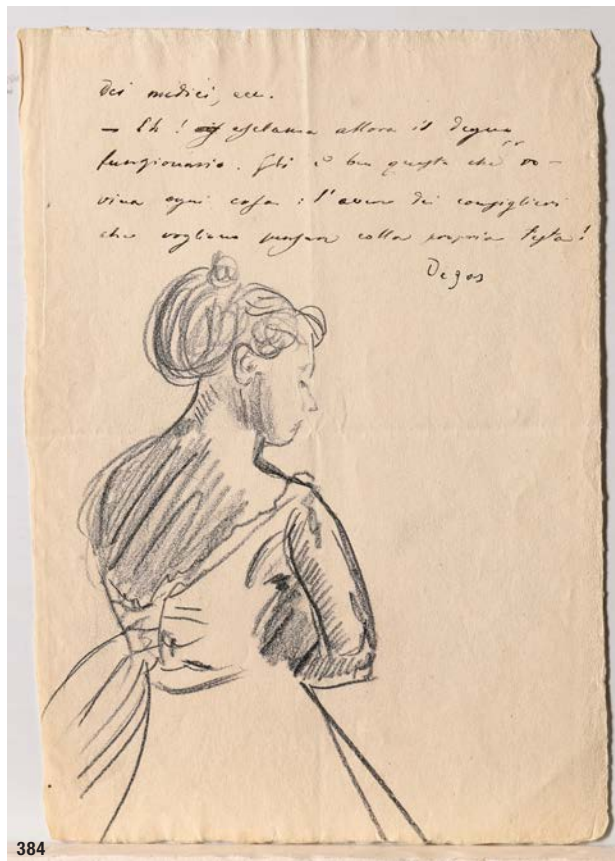 dei medici, ecc.
— Eh! esclama allora il degno
funzionario. Gli è ben questo che ro-
vina ogni cosa: l'avere dei consiglieri
che vogliono pensare colla propria testa!
Degas
384